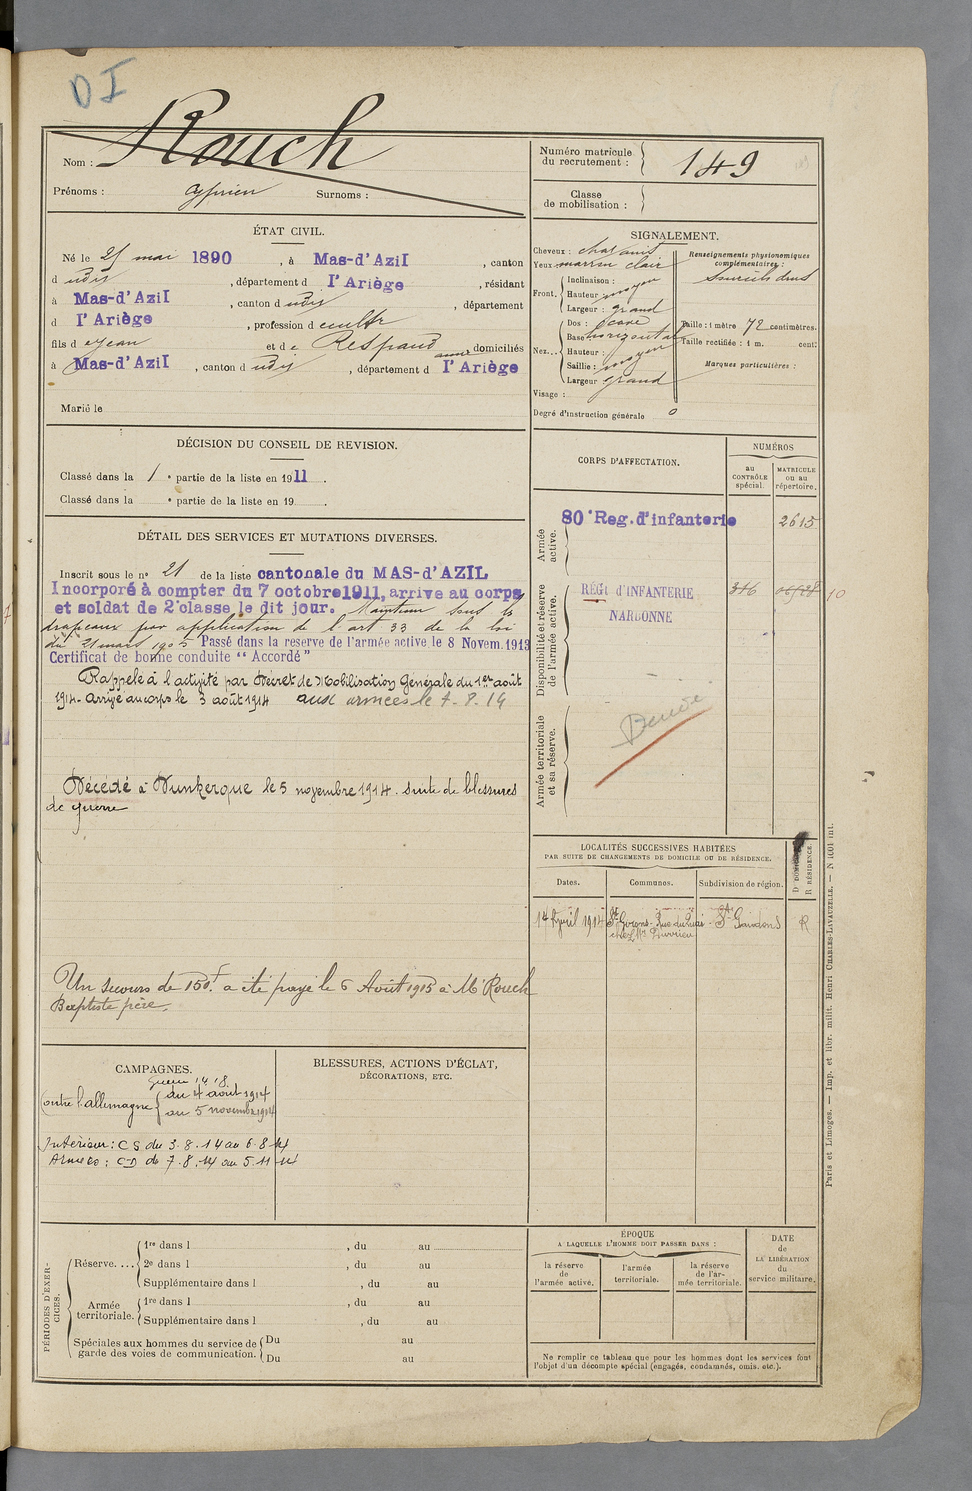 DI
Nom : Rouch
Prénoms : Cyprien Surnoms :
Numéro matricule du recrutement : 149
Classe de mobilisation :
ÉTAT CIVIL.
Né le 25 mai 1890, à Mas-d'Azil, canton
d udit, département d l'Ariège, résidant
à Mas-d'Azil, canton d udit, département
d l'Ariège, profession de cultr
fils de Jean et de Respaud domiciliés
à Mas-d'Azil, canton d udit, département d l'Ariège
Marié le
SIGNALEMENT.
Cheveux : chat
Yeux marron clair
Front. Inclinaison :
Hauteur moyen
Largeur : grand
Nez... Dos :
Base horizontale
Hauteur :
Saillie : moyen
Largeur grand
Visage :
Degré d'instruction générale 0
Renseignements physionomiques complémentaires :
Sourcils drus
Taille : 1 mètre 72 centimètres.
Taille rectifiée : 1 m. cent:
Marques particulières :
DÉCISION DU CONSEIL DE REVISION.
Classé dans la 1e partie de la liste en 1911.
Classé dans la e partie de la liste en 19 .
DÉTAIL DES SERVICES ET MUTATIONS DIVERSES.
Inscrit sous le no 21 de la liste cantonale du MAS-d'AZIL
Incorporé à compter du 7 octobre 1911, arrive au corps
et soldat de 2e classe le dit jour. Maintenu sous les
drapeaux par application de l'art 33 de la loi
du 21 mars 1905 Passé dans la reserve de l'armée active le 8 Novem. 1913
Certificat de bonne conduite "Accordé"
Rappelé à l'activité par Décret de Mobilisation Générale du 1er août
1914. Arrivé au corps le 3 août 1914 aux armées le 7-8-14
Décédé à Dunkerque le 5 novembre 1914. suite de blessures
de guerre
Un secours de 150f. a été payé le 6 Août 1915 à Mr Rouch
Baptiste père.
CORPS D'AFFECTATION.
NUMÉROS
au CONTRÔLE spécial.
MATRICULE ou au répertoire.
Armée active.
80e Reg. d'infanterie 2615
Disponibilité et réserve de l'armée active.
RÉGt d'INFANTERIE 346
NARBONNE
Armée territoriale et sa réserve.
LOCALITÉS SUCCESSIVES HABITÉES
PAR SUITE DE CHANGEMENTS DE DOMICILE OU DE RÉSIDENCE.
Dates. Communes. Subdivision de région. D DOMICILE R RÉSIDENCE.
14 Avril 1914 St Girons - Rue du Quai - St Gaudens R
chez Mr
CAMPAGNES.
Guerre 14-18
Contre l'allemagne du 4 août 1914
au 5 novembre 1914
Intérieur : CS du 3.8.14 au 6.8.14
Armées : CD du 7.8.14 au 5.11.14
BLESSURES, ACTIONS D'ÉCLAT,
DÉCORATIONS, ETC.
PÉRIODES D'EXERCICES.
Réserve.... 1re dans l , du au
2e dans l , du au
Supplémentaire dans l , du au
Armée territoriale. 1re dans l , du au
Supplémentaire dans l , du au
Spéciales aux hommes du service de garde des voies de communication. Du au
Du au
ÉPOQUE
A LAQUELLE L'HOMME DOIT PASSER DANS :
la réserve de l'armée active.
l'armée territoriale.
la réserve de l'armée territoriale.
DATE de LA LIBÉRATION du service militaire.
Ne remplir ce tableau que pour les hommes dont les services font
l'objet d'un décompte spécial (engagés, condamnés, omis, etc.).
Paris et Limoges. — Imp. et libr. milit. Henri CHARLES-LAVAUZELLE. — N 1001 int.